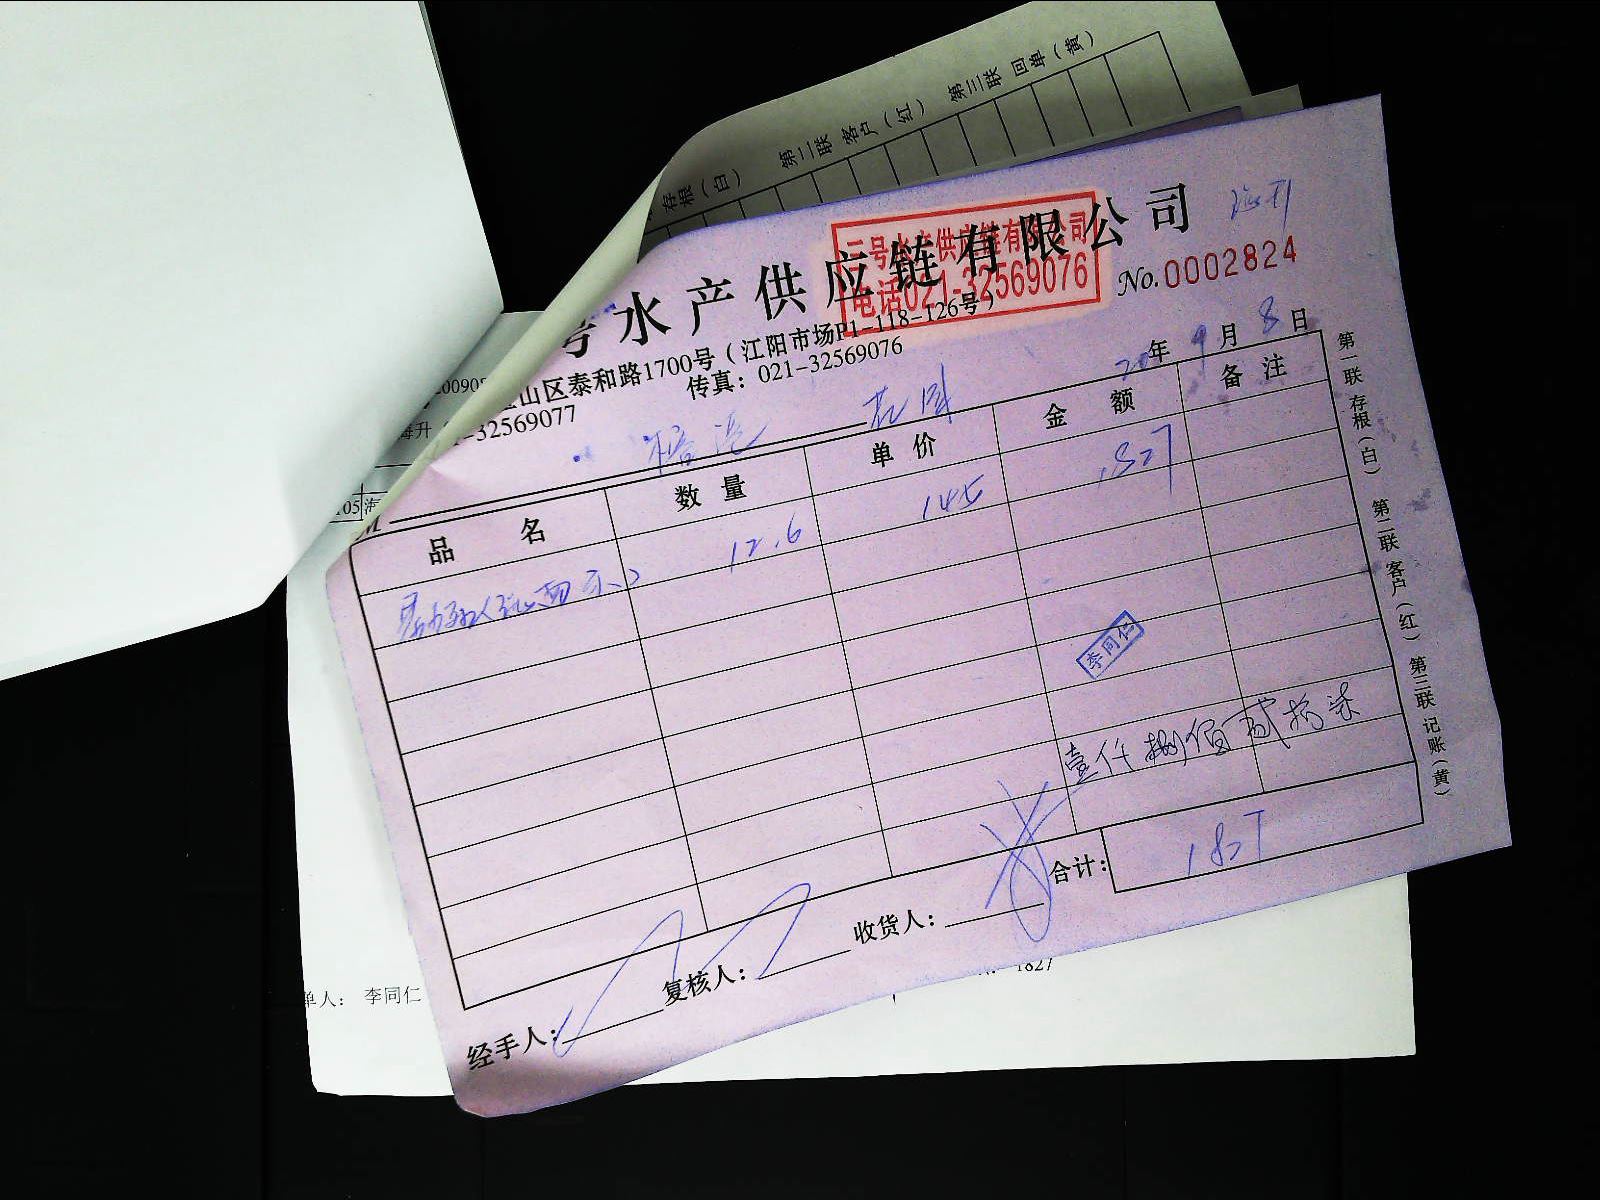 存根（白） 第二联 客户（红） 第三联 回单（黄）
号水产供应链有限公司
三号水产供应链有限公司
电话021-32569076
No.0002824
宝山区泰和路1700号（江阳市场P1-118-126号）
32569077 传真：021-32569076
20年9月8日
花园
品名 数量 单价 金额 备注
12.6 145 1827
李同仁
壹仟捌佰贰拾柒
合计： 1827
经手人： 复核人： 收货人：
第一联 存根（白） 第二联 客户（红） 第三联 记账（黄）
单人： 李同仁
1827